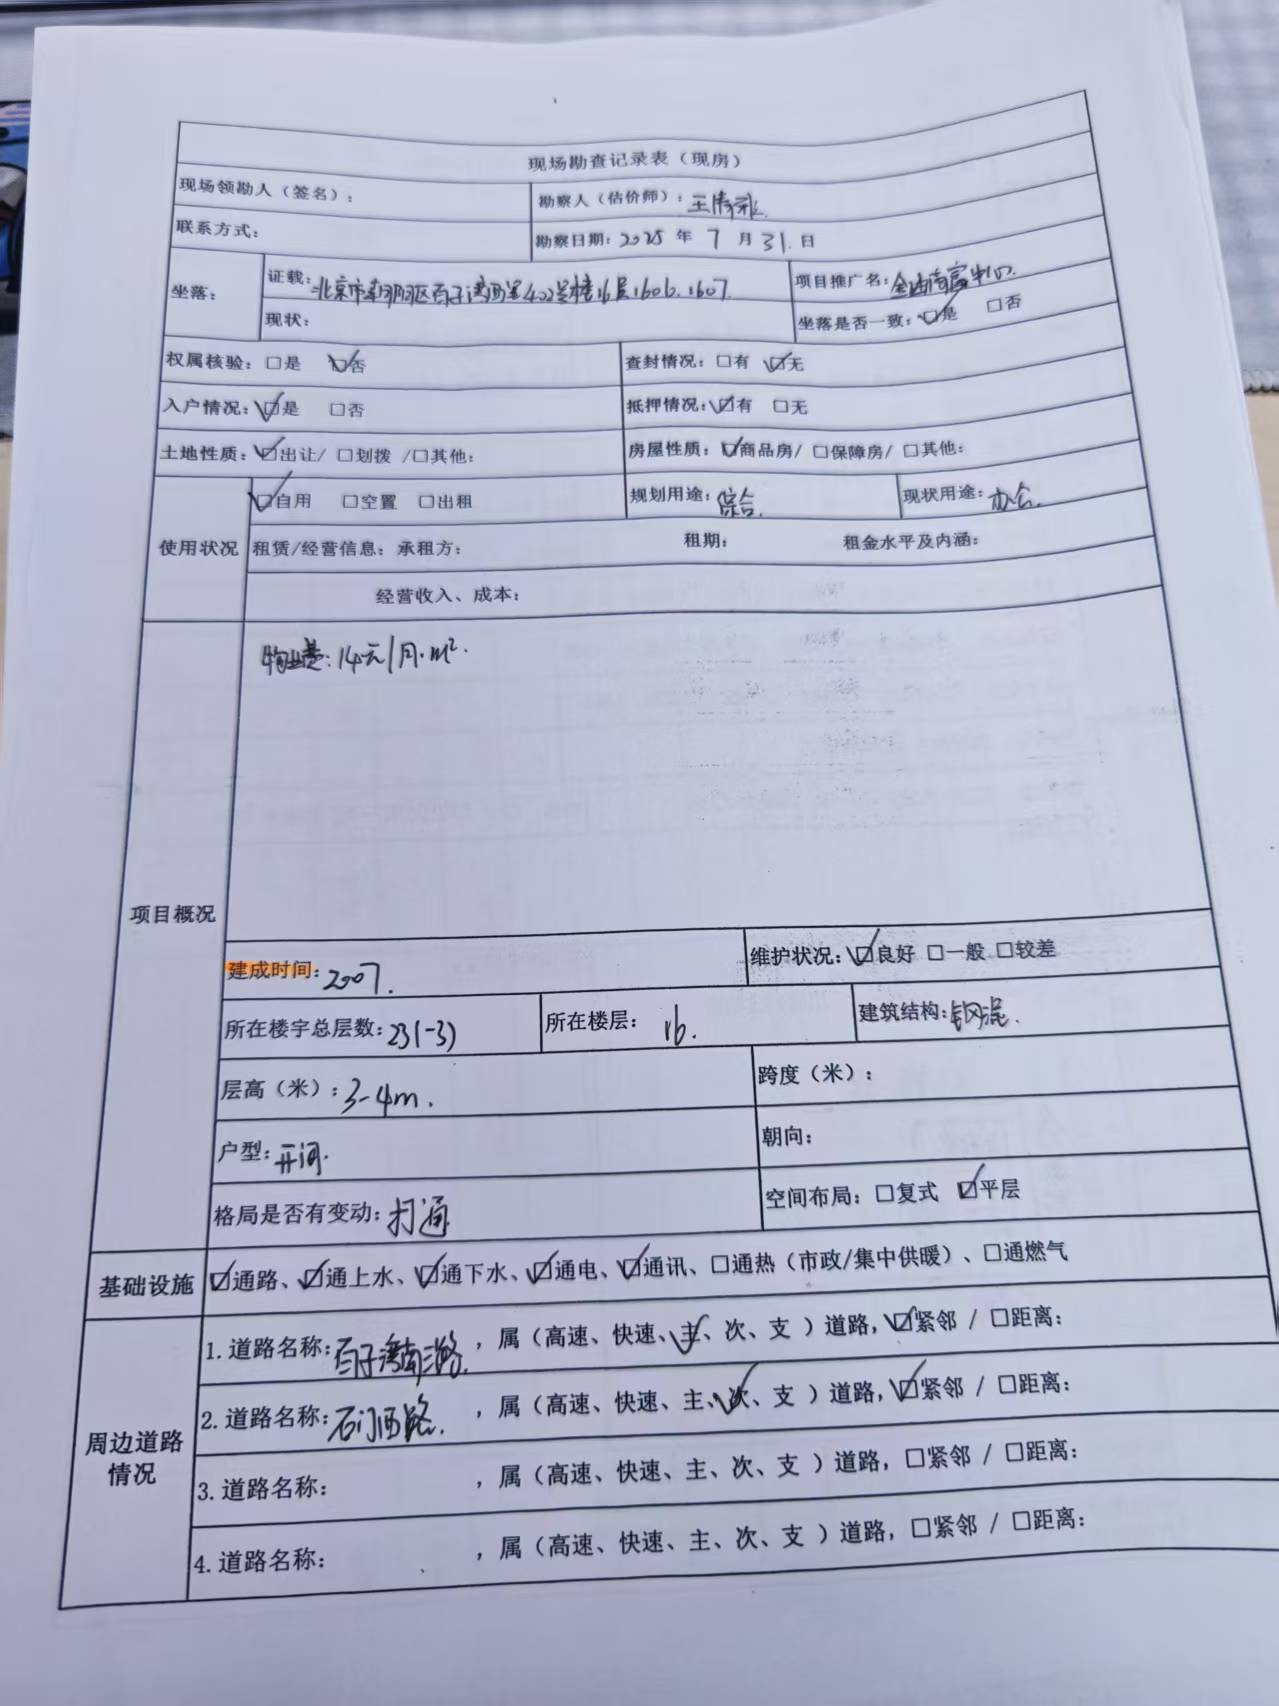 现场勘查记录表（现房）
现场领勘人（签名）： 勘察人（估价师）：王
联系方式： 勘察日期：2025 年 7 月 31 日
坐落： 证载：北京市朝阳区百子湾西里402号楼16层1606、1607 项目推广名：金 商富中心
现状： 坐落是否一致：☑是 □否
权属核验：□是 ☑否 查封情况：□有 ☑无
入户情况：☑是 □否 抵押情况：☑有 □无
土地性质：☑出让/ □划拨 /□其他： 房屋性质：☑商品房/ □保障房/ □其他：
使用状况 ☑自用 □空置 □出租 规划用途：综合. 现状用途：办公.
租赁/经营信息：承租方： 租期： 租金水平及内涵：
经营收入、成本：
项目概况 物业费：14元/月·m².
建成时间：2007. 维护状况：☑良好 □一般 □较差
所在楼宇总层数：23(-3) 所在楼层：16. 建筑结构：钢混.
层高（米）：3-4m. 跨度（米）：
户型：开间. 朝向：
格局是否有变动：打通 空间布局：□复式 ☑平层
基础设施 ☑通路、☑通上水、☑通下水、☑通电、☑通讯、□通热（市政/集中供暖）、□通燃气
周边道路情况 1.道路名称：百子湾南二路. ，属（高速、快速、主、次、支 ）道路，☑紧邻 / □距离：
2.道路名称：石门西路. ，属（高速、快速、主、次、支 ）道路，☑紧邻 / □距离：
3.道路名称： ，属（高速、快速、主、次、支 ）道路，□紧邻 / □距离：
4.道路名称： ，属（高速、快速、主、次、支 ）道路，□紧邻 / □距离：